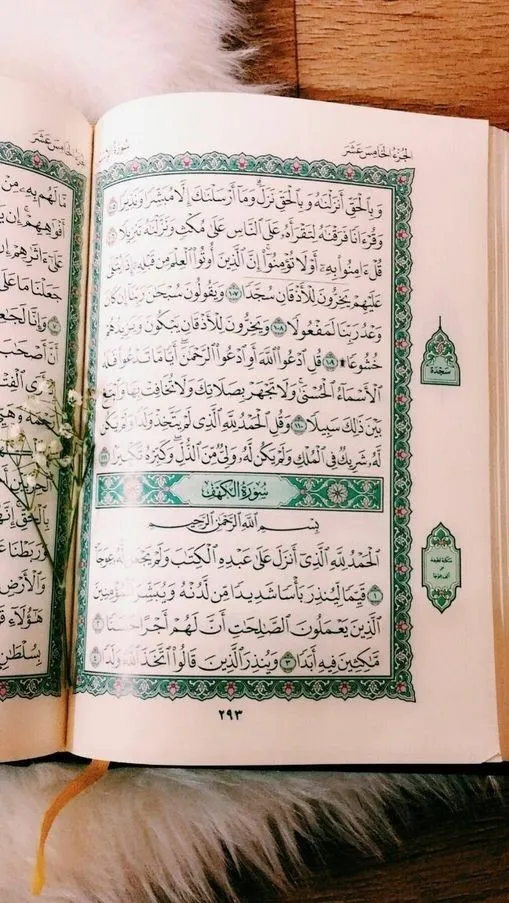 الجزء الخامس عشر
سورة
وَبِالْحَقِّ أَنزَلْنَاهُ وَبِالْحَقِّ نَزَلَ ۗ وَمَا أَرْسَلْنَاكَ إِلَّا مُبَشِّرًا وَنَذِيرًا ١٠٥
وَقُرْءَانًا فَرَقْنَاهُ لِتَقْرَأَهُ عَلَى النَّاسِ عَلَىٰ مُكْثٍ وَنَزَّلْنَاهُ تَنزِيلًا ١٠٦
قُلْ ءَامِنُوا بِهِ أَوْ لَا تُؤْمِنُوا ۚ إِنَّ الَّذِينَ أُوتُوا الْعِلْمَ مِن قَبْلِهِ إِذَا يُتْلَىٰ
عَلَيْهِمْ يَخِرُّونَ لِلْأَذْقَانِ سُجَّدًا ١٠٧ وَيَقُولُونَ سُبْحَانَ رَبِّنَا إِن كَانَ
وَعْدُ رَبِّنَا لَمَفْعُولًا ١٠٨ وَيَخِرُّونَ لِلْأَذْقَانِ يَبْكُونَ وَيَزِيدُهُمْ
خُشُوعًا ۩ ١٠٩ قُلِ ادْعُوا اللَّهَ أَوِ ادْعُوا الرَّحْمَٰنَ ۖ أَيًّا مَّا تَدْعُوا فَلَهُ
الْأَسْمَاءُ الْحُسْنَىٰ ۚ وَلَا تَجْهَرْ بِصَلَاتِكَ وَلَا تُخَافِتْ بِهَا وَابْتَغِ
بَيْنَ ذَٰلِكَ سَبِيلًا ١١٠ وَقُلِ الْحَمْدُ لِلَّهِ الَّذِي لَمْ يَتَّخِذْ وَلَدًا وَلَمْ يَكُن
لَّهُ شَرِيكٌ فِي الْمُلْكِ وَلَمْ يَكُن لَّهُ وَلِيٌّ مِّنَ الذُّلِّ ۖ وَكَبِّرْهُ تَكْبِيرًا ١١١
سُورَةُ الْكَهْفِ
بِسْمِ اللَّهِ الرَّحْمَٰنِ الرَّحِيمِ
الْحَمْدُ لِلَّهِ الَّذِي أَنزَلَ عَلَىٰ عَبْدِهِ الْكِتَابَ وَلَمْ يَجْعَل لَّهُ عِوَجًا
١ قَيِّمًا لِّيُنذِرَ بَأْسًا شَدِيدًا مِّن لَّدُنْهُ وَيُبَشِّرَ الْمُؤْمِنِينَ
الَّذِينَ يَعْمَلُونَ الصَّالِحَاتِ أَنَّ لَهُمْ أَجْرًا حَسَنًا ٢
مَّاكِثِينَ فِيهِ أَبَدًا ٣ وَيُنذِرَ الَّذِينَ قَالُوا اتَّخَذَ اللَّهُ وَلَدًا ٤
٢٩٣
سجدة
الجزء الخامس عشر
مَّا لَهُم بِهِ مِنْ
أَفْوَاهِهِمْ إِن
عَلَىٰ ءَاثَارِهِمْ إِن
جَعَلْنَا مَا عَلَى
٧ وَإِنَّا
أَنَّ أَصْحَابَ
الْحِزْبَيْنِ
بِالْحَقِّ
وَرَبَطْنَا
وَالْأَرْضِ
هَٰؤُلَاءِ
بِسُلْطَانٍ